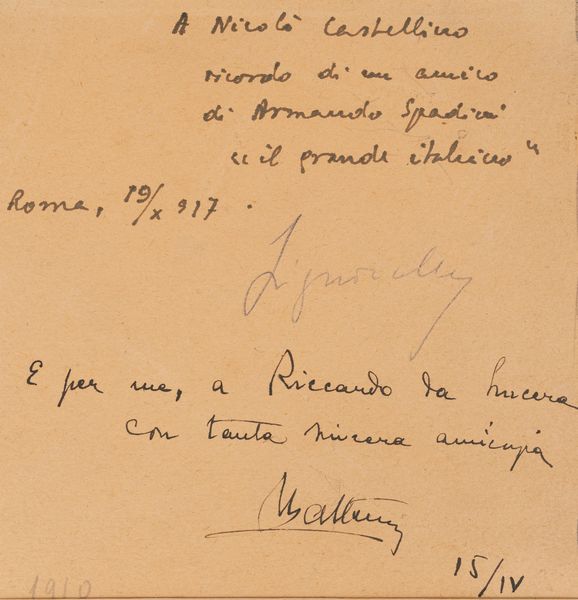 A Nicolà Castellino
ricordo di un amico
di Armando Spadini
"il grande italiano"
Roma, 19/X 917.
Signorelli
E per me, a Riccardo da
con tanta sincera amicizia
15/IV
1910